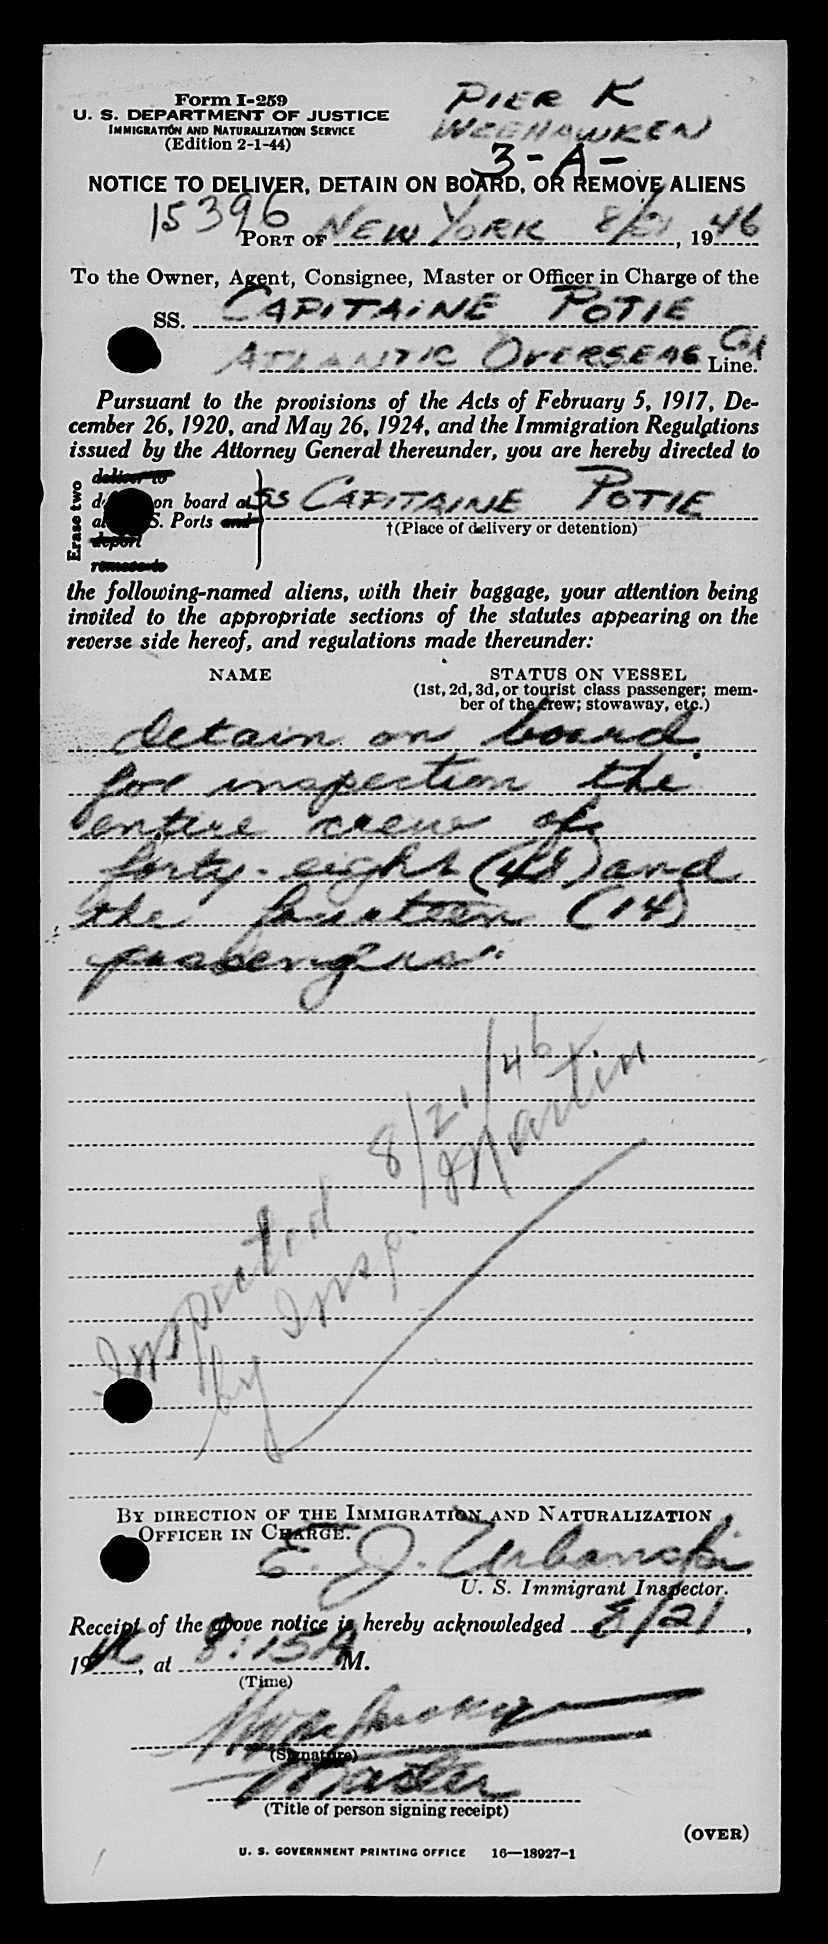 Form I-259
U. S. DEPARTMENT OF JUSTICE
IMMIGRATION AND NATURALIZATION SERVICE
(Edition 2-1-44)
PIER K
WEEHAWKEN
3-A-
NOTICE TO DELIVER, DETAIN ON BOARD, OR REMOVE ALIENS
15396
PORT OF NEW YORK 8/21, 1946
To the Owner, Agent, Consignee, Master or Officer in Charge of the
SS. CAPITAINE POTIE
ATLANTIC OVERSEAS Line.
Pursuant to the provisions of the Acts of February 5, 1917, De-
cember 26, 1920, and May 26, 1924, and the Immigration Regulations
issued by the Attorney General thereunder, you are hereby directed to
Erase two
deliver to
on board at SS CAPITAINE POTIE
S. Ports and
†(Place of delivery or detention)
deport
remove to
the following-named aliens, with their baggage, your attention being
invited to the appropriate sections of the statutes appearing on the
reverse side hereof, and regulations made thereunder:
NAME STATUS ON VESSEL
(1st, 2d, 3d, or tourist class passenger; mem-
ber of the crew; stowaway, etc.)
detain on board
for inspection the
entire crew of
forty-eight (48) and
the fourteen (14)
passengers.
Inspected 8/21/46
by Insp. Martin
BY DIRECTION OF THE IMMIGRATION AND NATURALIZATION
OFFICER IN CHARGE.
E. J. Urbanski
U. S. Immigrant Inspector.
Receipt of the above notice is hereby acknowledged 8/21,
19 46, at 8:15 A M.
(Time)
(Signature)
Master
(Title of person signing receipt)
(OVER)
U. S. GOVERNMENT PRINTING OFFICE 16—18927-1